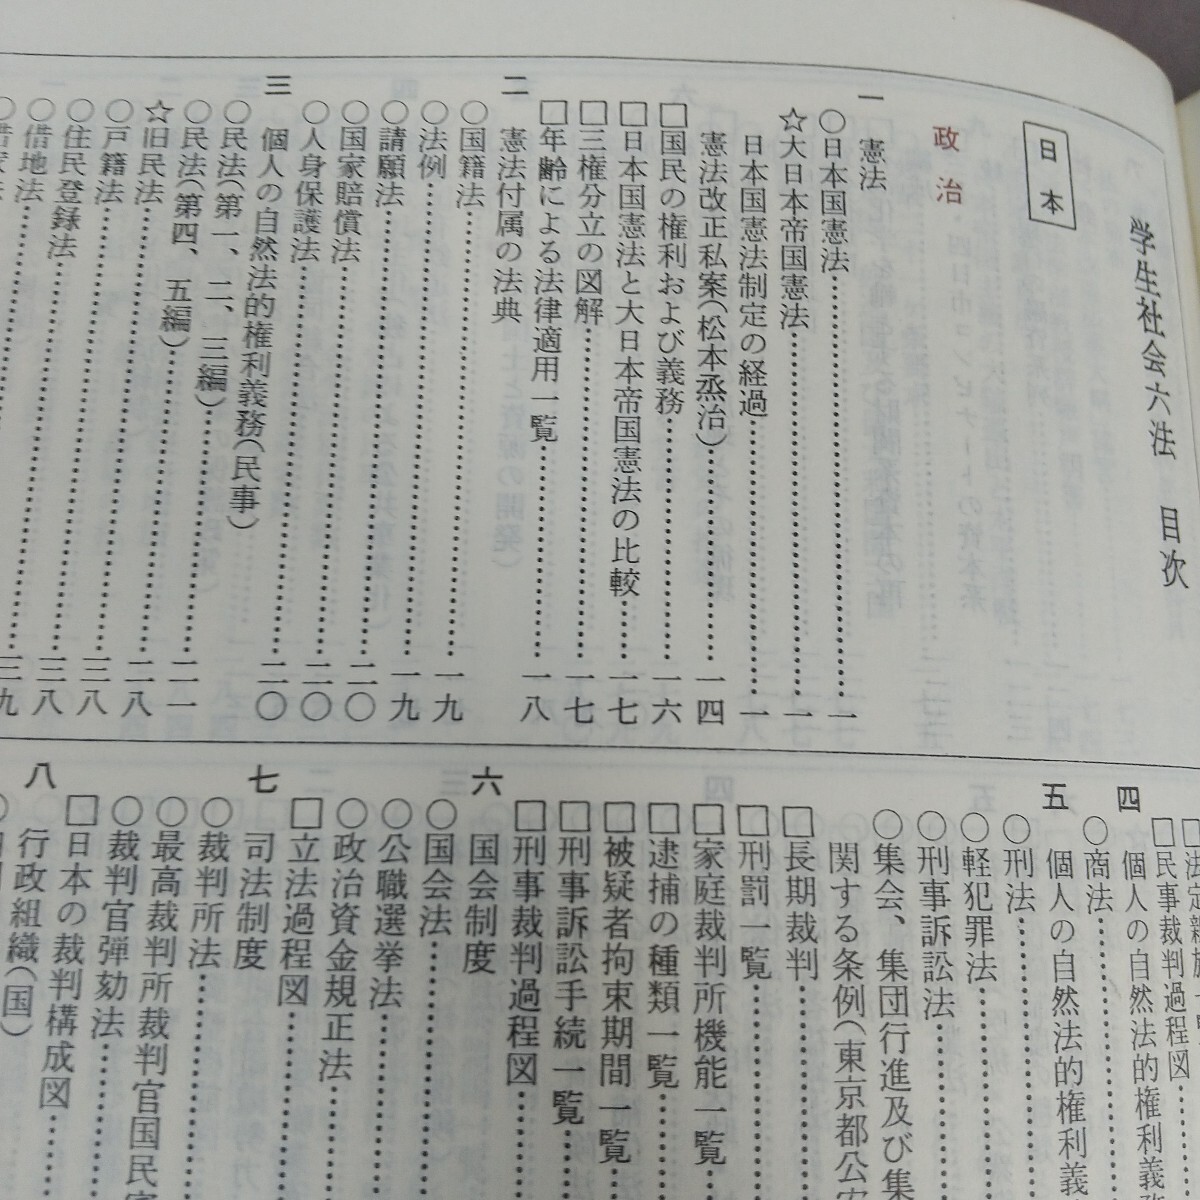 学生社会六法　目次
日本
政治
一　憲法
○日本国憲法……一
☆大日本帝国憲法……一一
日本国憲法制定の経過……一
憲法改正私案(松本烝治)……一四
□国民の権利および義務……一六
□日本国憲法と大日本帝国憲法の比較……一七
□三権分立の図解……一七
□年齢による法律適用一覧……一八
二　憲法付属の法典
○国籍法……一九
○法例……一九
○請願法……一九
○国家賠償法……二〇
○人身保護法……二〇
三　個人の自然法的権利義務(民事)……二〇
○民法(第一、二、三編)
○民法(第四、五編)……二一
☆旧民法……二八
○戸籍法……三八
○住民登録法……三八
○借地法……三九
□民事裁判過程図
四　個人の自然法的権利義
○商法……
五　個人の自然法的権利義
○刑法……
○軽犯罪法……
○刑事訴訟法……
○集会、集団行進及び集
関する条例(東京都公安
□長期裁判……
□刑罰一覧……
□家庭裁判所機能一覧
□逮捕の種類一覧……
□被疑者拘束期間一覧
□刑事訴訟手続一覧……
□刑事裁判過程図……
六　国会制度
○国会法……
○公職選挙法……
○政治資金規正法……
□立法過程図……
七　司法制度
○裁判所法……
○最高裁判所裁判官国民審
○裁判官弾劾法……
□日本の裁判構成図……
八　行政組織(国)